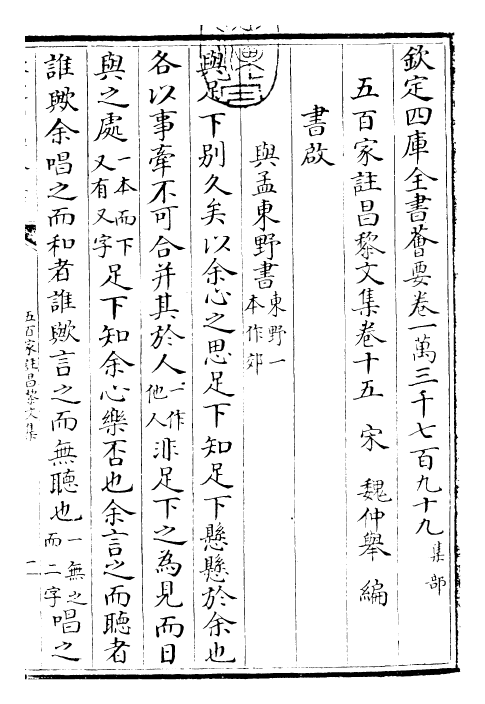 欽定四庫全書薈要卷一萬三千七百九十九 集部
五百家註昌黎文集卷十五 宋 魏仲舉 編
書啟
與孟東野書 東野一本作郊
與足下别久矣以余心之思足下知足下懸懸於余也
各以事牽不可合并其於人一作他人非足下之為見而日
與之處一本而下又有又字足下知余心樂否也余言之而聽者
誰歟余唱之而和者誰歟言之而無聽也一無之而二字唱之
五百家註昌黎文集
一